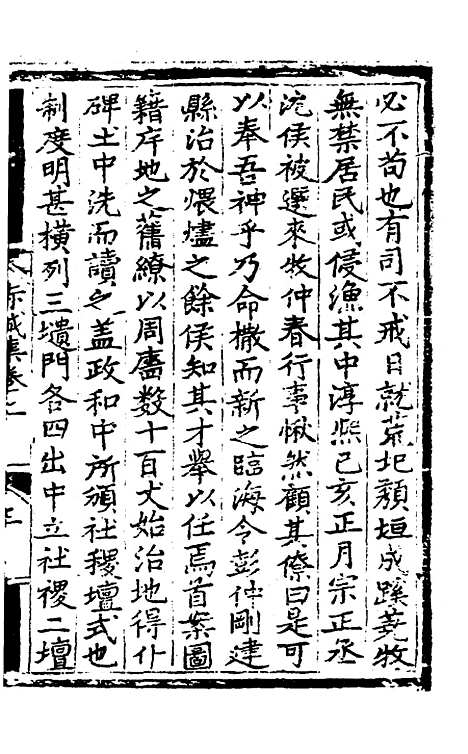 必不苟也有司不戒日就荒圯頽垣成蹊蕘牧
無禁居民或侵漁其中淳熈己亥正月宗正丞
沈侯被選來牧仲春行事愀然顧其僚曰是可
以奉吾神乎乃命撤而新之臨海令彭仲剛建
縣治於煨燼之餘侯知其才舉以任焉首案圖
籍序地之舊繚以周廬數十百丈始治地得仆
碑土中洗而讀之盖政和中所頒社稷壇式也
制度明甚橫列三壝門各四出中立社稷二壇
赤城集卷二